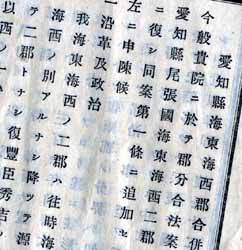 愛知縣海東海西郡合併
今般貴院ニ於テ郡分合法案
愛知縣尾張國海東海西二郡
ニ復シ同案第一條ニ追加セ
左ニ申陳候
沿革及政治
我海東海西ノ二郡ハ往時海
海西ノ別アルナシ降ツテ源
テ二郡トナシ復豐臣秀吉ノ
以西ノ